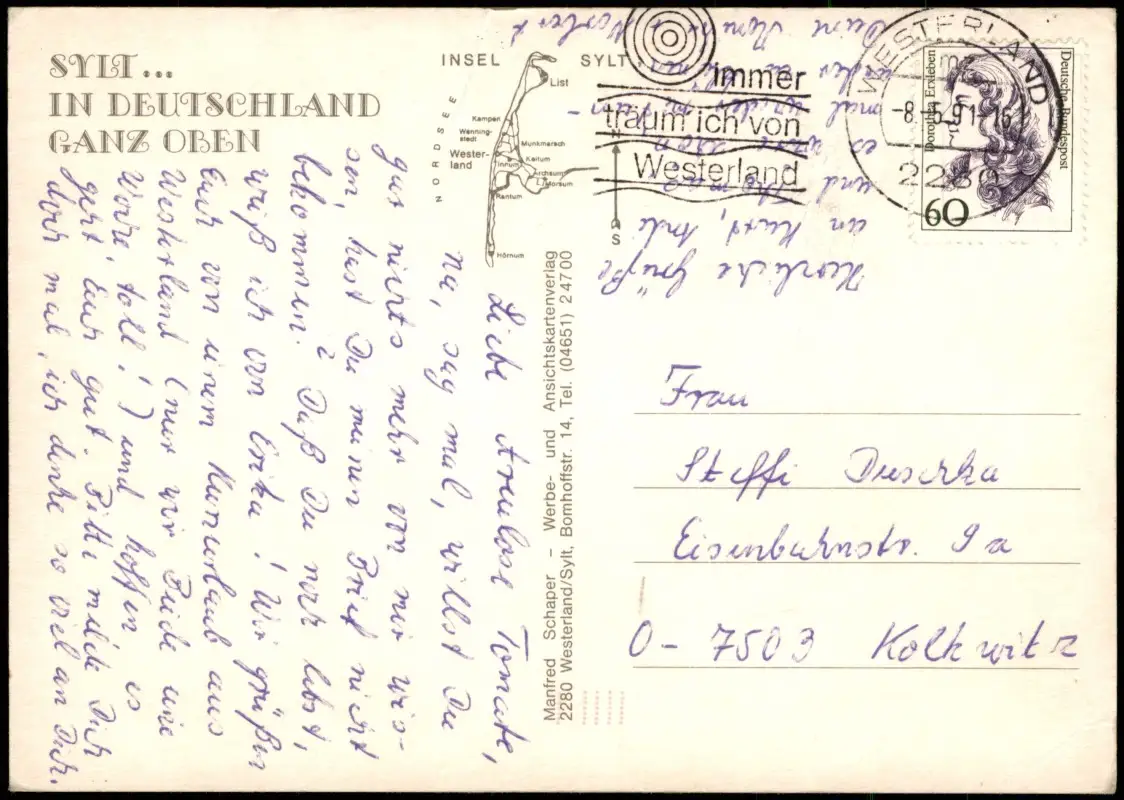 SYLT...
IN DEUTSCHLAND
GANZ OBEN
INSEL SYLT
NORDSEE
List
Kampen
Wenning-
stedt
Munkmarsch
Wester-
land
Keitum
Tinnum
Archsum
Morsum
Rantum
Hörnum
N
S
immer
träum ich von
Westerland
WESTERLAND
-8.-5.91-16
2280
mz
Deutsche Bundespost
Dorothea Erxleben
60
Liebe treulose Tomate,
na, sag mal, willst Du
gar nichts mehr von mir wis-
sen, hast Du meinen Brief nicht
bekommen? Daß Du noch lebst,
weiß ich von Erika! Wir grüßen
Euch von einem Kurzurlaub aus
Westerland (nur wir Beide eine
Woche, toll!) und hoffen, es
geht Euch gut. Bitte melde Dich
doch mal, ich denke so viel an Dich.
Herzliche Grüße
an Kurt,
und
es wäre schön
mal wieder
Deine Norbert
Manfred Schaper – Werbe- und Ansichtskartenverlag
2280 Westerland/Sylt, Bomhoffstr. 14, Tel. (04651) 24700
Frau
Steffi Duschka
Eisenbahnstr. 9a
O-7503 Kolkwitz